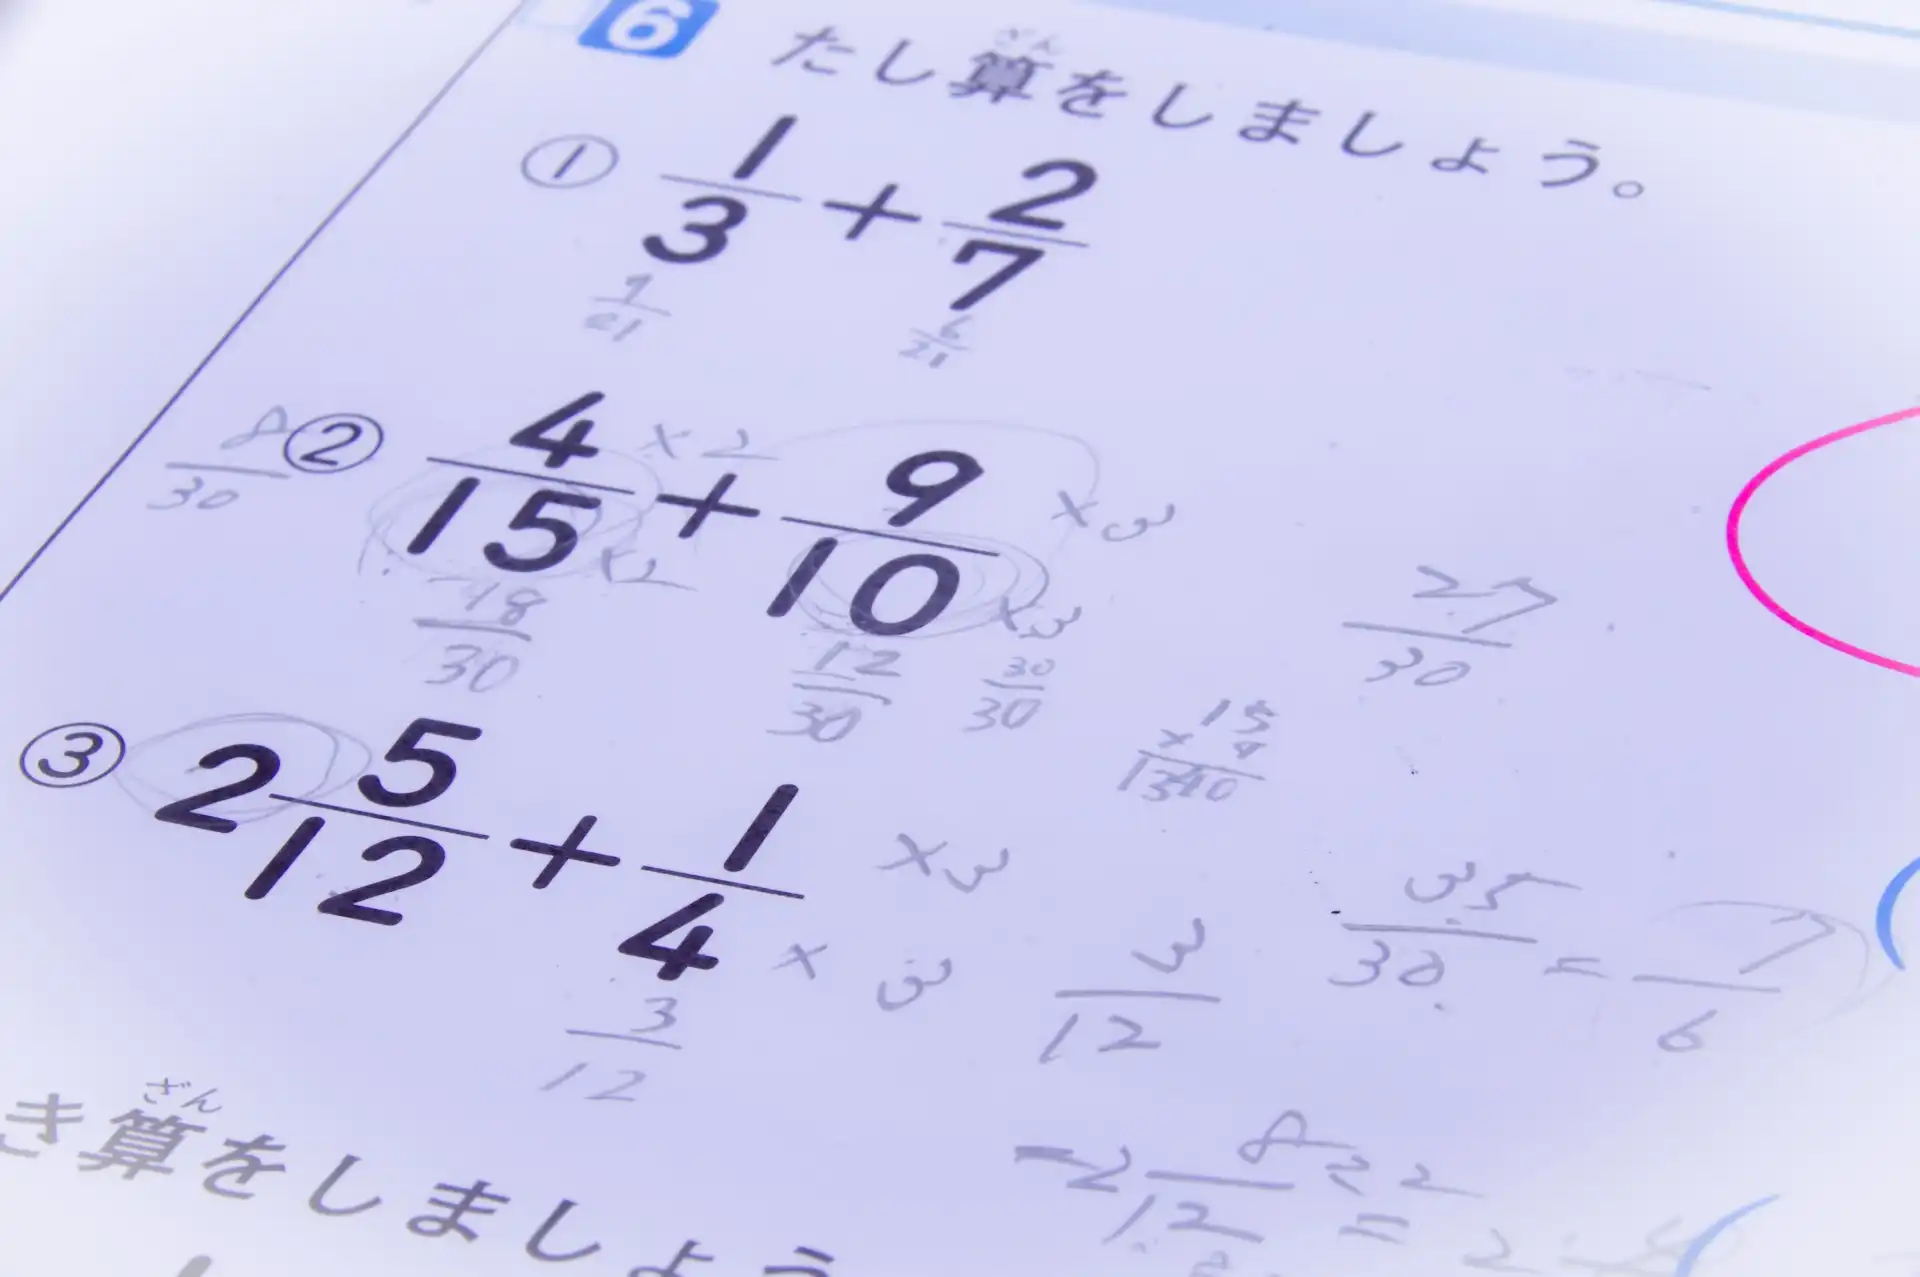 6 たし算をしましょう。
ざん
① 1/3 + 2/7
7/21 6/21
8/30 ② 4/15 + 9/10
×2 ×3
×2 ×3
18/30 12/30 30/30 27/30
15
× 4
③ 2 5/12 + 1/4
×3
×3
3/12 3/12 35/30 = 7/6
2 8/12 =
ざん
き算をしましょう